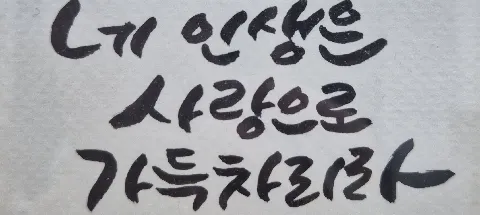 네 인생은
사랑으로
가득차리라